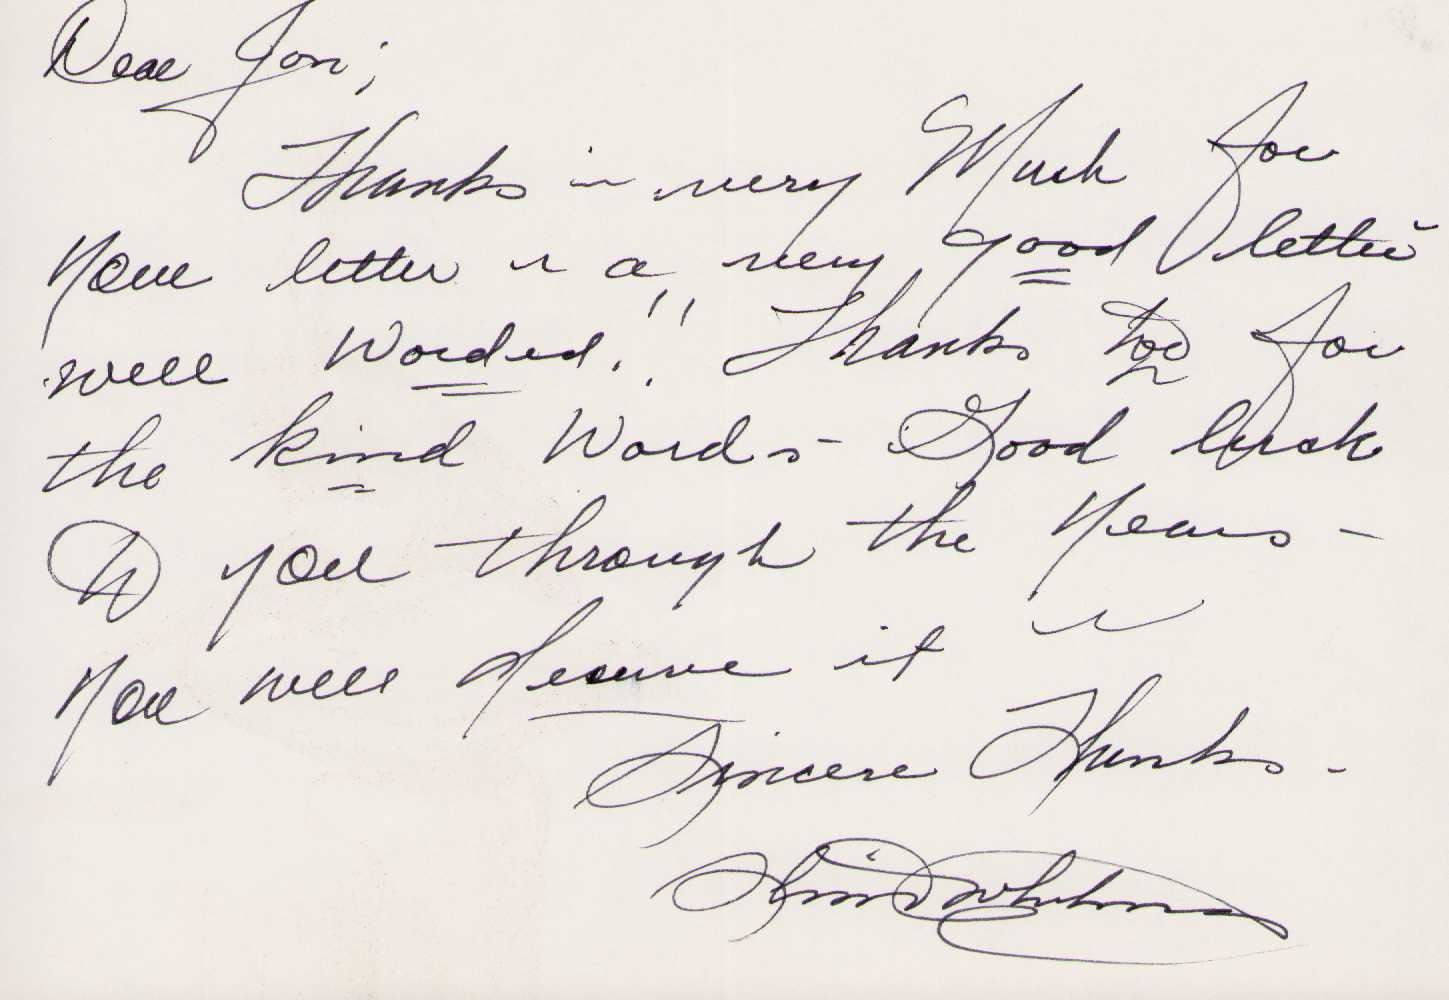 Dear Jon;
Thanks - very Much for
your letter - a very good letter
well Worded!! Thanks too for
the kind Words - Good luck
To you through the years -
You well deserve it -
Sincere Thanks -